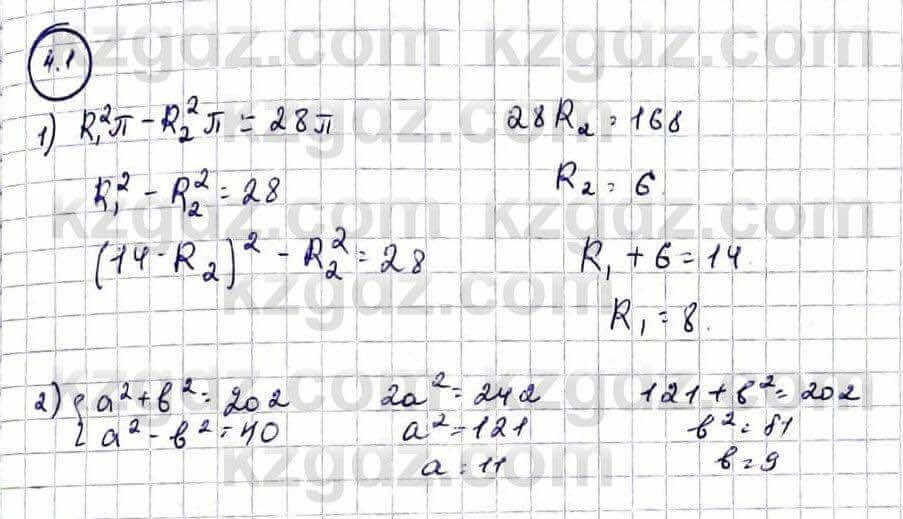 4.1
1) R₁²π - R₂²π = 28π
R₁² - R₂² = 28
(14 - R₂)² - R₂² = 28
28R₂ = 168
R₂ = 6
R₁ + 6 = 14
R₁ = 8.
2) { a² + b² = 202
a² - b² = 40
2a² = 242
a² = 121
a = 11
121 + b² = 202
b² = 81
b = 9
kzgdz.com kzgdz.com
kzgdz.com kzgdz.com
kzgdz.com kzgdz.com
kzgdz.com kzgdz.com
kzgdz.com kzgdz.com
kzgdz.com kzgdz.com